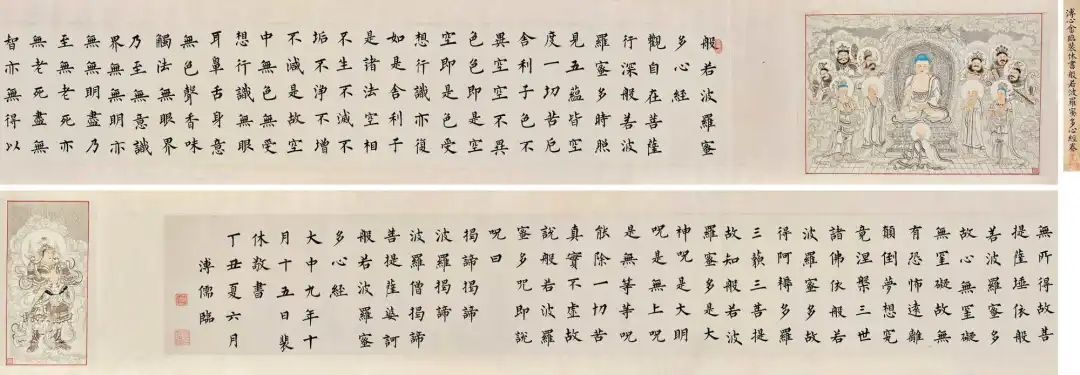 溥心畬臨裴休書般若波羅蜜多心經卷
般若波羅蜜
多心經
觀自在菩薩
行深般若波
羅蜜多時照
見五蘊皆空
度一切苦厄
舍利子色不
異空空不異
色色即是空
空即是色受
想行識亦復
如是舍利子
是諸法空相
不生不滅不
垢不淨不增
不減是故空
中無色無受
想行識無眼
耳鼻舌身意
無色聲香味
觸法無眼界
乃至無意識
界無無明亦
無無明盡乃
至無老死亦
無老死盡無
智亦無得以
無所得故菩
提薩埵依般
若波羅蜜多
故心無罣礙
無罣礙故無
有恐怖遠離
顛倒夢想究
竟涅槃三世
諸佛依般若
波羅蜜多故
得阿耨多羅
三藐三菩提
故知般若波
羅蜜多是大
神呪是大明
呪是無上呪
是無等等呪
能除一切苦
真實不虛故
說般若波羅
蜜多呪即說
呪曰
揭諦揭諦
波羅揭諦
波羅僧揭諦
菩提娑訶
般若波羅蜜
多心經
大中九年十
月十五日裴
休敬書
丁丑夏六月
溥儒臨